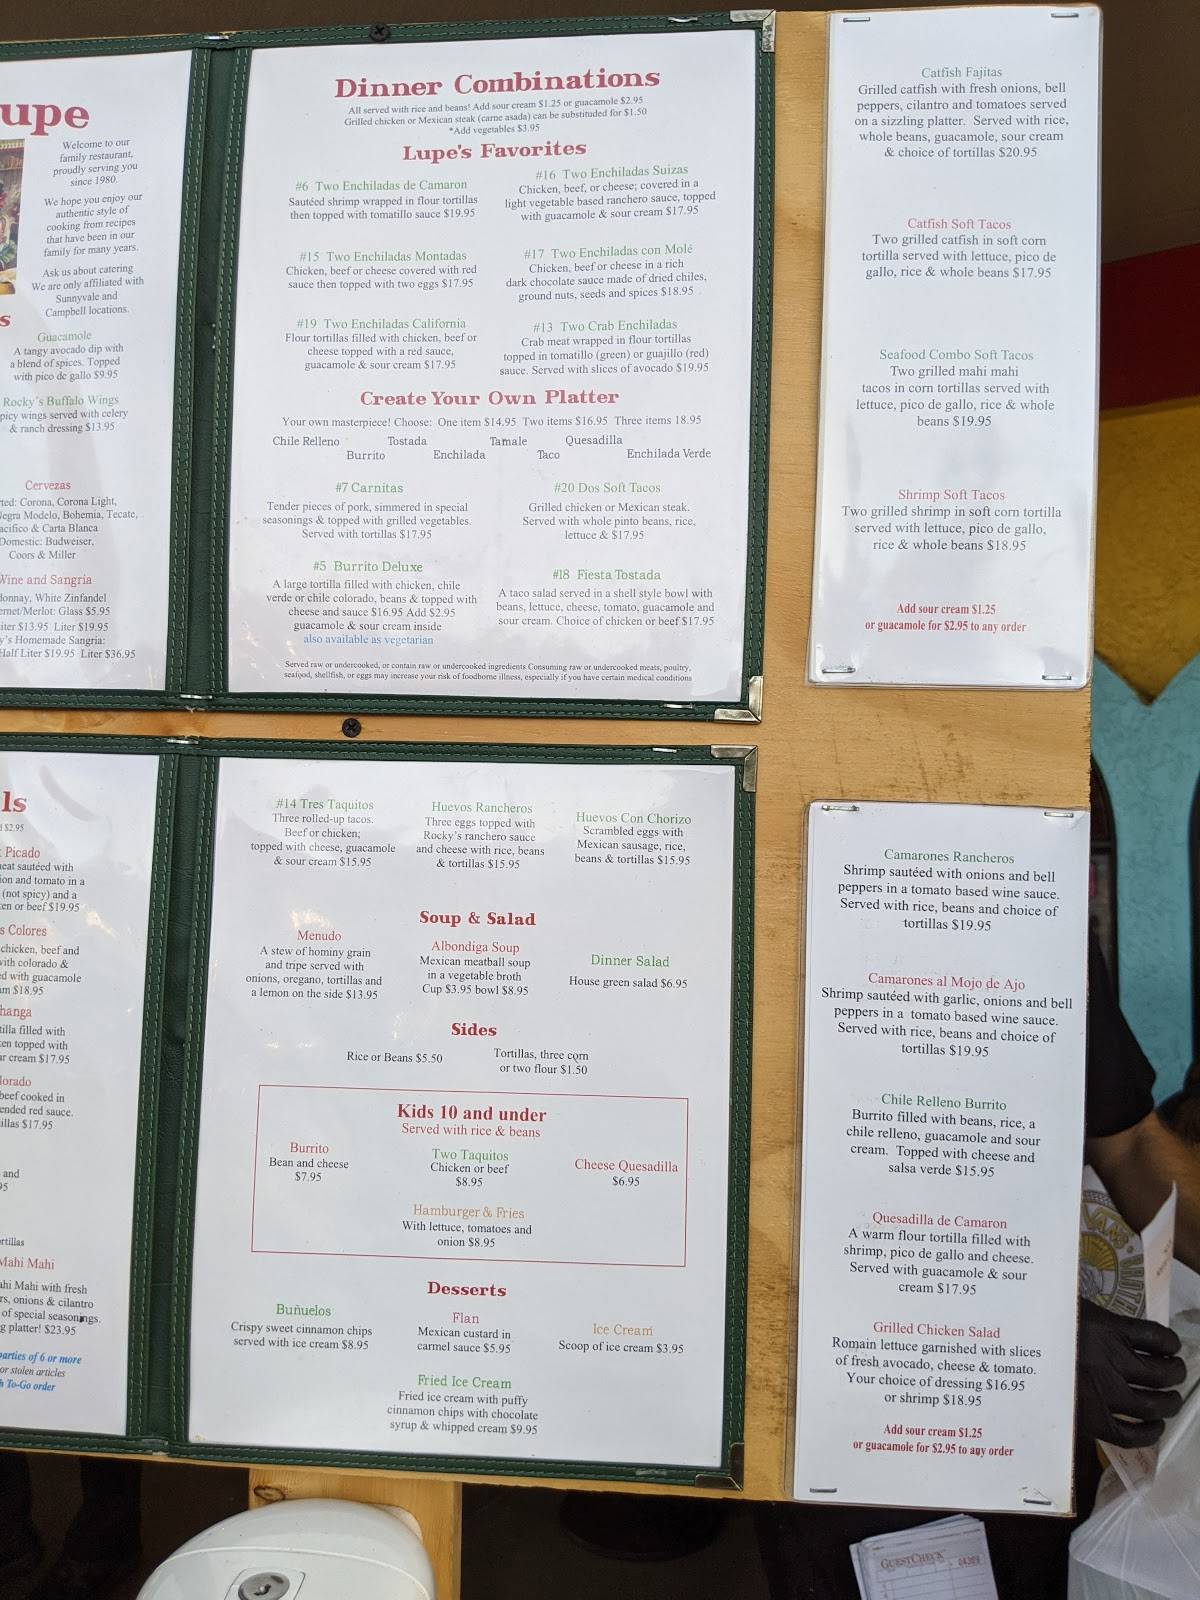 upe
Welcome to our
family restaurant,
proudly serving you
since 1980.
We hope you enjoy our
authentic style of
cooking from recipes
that have been in our
family for many years.
Ask us about catering
We are only affiliated with
Sunnyvale and
Campbell locations.
s
Guacamole
A tangy avocado dip with
a blend of spices. Topped
with pico de gallo $9.95
Rocky's Buffalo Wings
picy wings served with celery
& ranch dressing $13.95
Cervezas
ted: Corona, Corona Light,
egra Modelo, Bohemia, Tecate,
acifico & Carta Blanca
Domestic: Budweiser,
Coors & Miller
Wine and Sangria
donnay, White Zinfandel
ernet/Merlot: Glass $5.95
iter $13.95 Liter $19.95
y's Homemade Sangria:
Half Liter $19.95 Liter $36.95
Dinner Combinations
All served with rice and beans! Add sour cream $1.25 or guacamole $2.95
Grilled chicken or Mexican steak (carne asada) can be substituded for $1.50
*Add vegetables $3.95
Lupe's Favorites
#6 Two Enchiladas de Camaron
Sautéed shrimp wrapped in flour tortillas
then topped with tomatillo sauce $19.95
#16 Two Enchiladas Suizas
Chicken, beef, or cheese; covered in a
light vegetable based ranchero sauce, topped
with guacamole & sour cream $17.95
#15 Two Enchiladas Montadas
Chicken, beef or cheese covered with red
sauce then topped with two eggs $17.95
#17 Two Enchiladas con Molé
Chicken, beef or cheese in a rich
dark chocolate sauce made of dried chiles,
ground nuts, seeds and spices $18.95
#19 Two Enchiladas California
Flour tortillas filled with chicken, beef or
cheese topped with a red sauce,
guacamole & sour cream $17.95
#13 Two Crab Enchiladas
Crab meat wrapped in flour tortillas
topped in tomatillo (green) or guajillo (red)
sauce. Served with slices of avocado $19.95
Create Your Own Platter
Your own masterpiece! Choose: One item $14.95 Two items $16.95 Three items 18.95
Chile Relleno Tostada Tamale Quesadilla
Burrito Enchilada Taco Enchilada Verde
#7 Carnitas
Tender pieces of pork, simmered in special
seasonings & topped with grilled vegetables.
Served with tortillas $17.95
#20 Dos Soft Tacos
Grilled chicken or Mexican steak.
Served with whole pinto beans, rice,
lettuce & $17.95
#5 Burrito Deluxe
A large tortilla filled with chicken, chile
verde or chile colorado, beans & topped with
cheese and sauce $16.95 Add $2.95
guacamole & sour cream inside
also available as vegetarian
#18 Fiesta Tostada
A taco salad served in a shell style bowl with
beans, lettuce, cheese, tomato, guacamole and
sour cream. Choice of chicken or beef $17.95
Served raw or undercooked, or contain raw or undercooked ingredients Consuming raw or undercooked meats, poultry,
seafood, shellfish, or eggs may increase your risk of foodborne illness, especially if you have certain medical conditions
Catfish Fajitas
Grilled catfish with fresh onions, bell
peppers, cilantro and tomatoes served
on a sizzling platter. Served with rice,
whole beans, guacamole, sour cream
& choice of tortillas $20.95
Catfish Soft Tacos
Two grilled catfish in soft corn
tortilla served with lettuce, pico de
gallo, rice & whole beans $17.95
Seafood Combo Soft Tacos
Two grilled mahi mahi
tacos in corn tortillas served with
lettuce, pico de gallo, rice & whole
beans $19.95
Shrimp Soft Tacos
Two grilled shrimp in soft corn tortilla
served with lettuce, pico de gallo,
rice & whole beans $18.95
Add sour cream $1.25
or guacamole for $2.95 to any order
ls
d $2.95
Picado
eat sautéed with
ion and tomato in a
(not spicy) and a
en or beef $19.95
s Colores
chicken, beef and
with colorado &
ed with guacamole
am $18.95
hanga
tilla filled with
en topped with
ur cream $17.95
lorado
beef cooked in
ended red sauce.
tillas $17.95
and
95
rtillas
Mahi Mahi
ahi Mahi with fresh
rs, onions & cilantro
of special seasonings.
g platter! $23.95
parties of 6 or more
or stolen articles
h To-Go order
#14 Tres Taquitos
Three rolled-up tacos.
Beef or chicken;
topped with cheese, guacamole
& sour cream $15.95
Huevos Rancheros
Three eggs topped with
Rocky's ranchero sauce
and cheese with rice, beans
& tortillas $15.95
Huevos Con Chorizo
Scrambled eggs with
Mexican sausage, rice,
beans & tortillas $15.95
Soup & Salad
Menudo
A stew of hominy grain
and tripe served with
onions, oregano, tortillas and
a lemon on the side $13.95
Albondiga Soup
Mexican meatball soup
in a vegetable broth
Cup $3.95 bowl $8.95
Dinner Salad
House green salad $6.95
Sides
Rice or Beans $5.50
Tortillas, three corn
or two flour $1.50
Kids 10 and under
Served with rice & beans
Burrito
Bean and cheese
$7.95
Two Taquitos
Chicken or beef
$8.95
Cheese Quesadilla
$6.95
Hamburger & Fries
With lettuce, tomatoes and
onion $8.95
Desserts
Buñuelos
Crispy sweet cinnamon chips
served with ice cream $8.95
Flan
Mexican custard in
carmel sauce $5.95
Ice Cream
Scoop of ice cream $3.95
Fried Ice Cream
Fried ice cream with puffy
cinnamon chips with chocolate
syrup & whipped cream $9.95
Camarones Rancheros
Shrimp sautéed with onions and bell
peppers in a tomato based wine sauce.
Served with rice, beans and choice of
tortillas $19.95
Camarones al Mojo de Ajo
Shrimp sautéed with garlic, onions and bell
peppers in a tomato based wine sauce.
Served with rice, beans and choice of
tortillas $19.95
Chile Relleno Burrito
Burrito filled with beans, rice, a
chile relleno, guacamole and sour
cream. Topped with cheese and
salsa verde $15.95
Quesadilla de Camaron
A warm flour tortilla filled with
shrimp, pico de gallo and cheese.
Served with guacamole & sour
cream $17.95
Grilled Chicken Salad
Romain lettuce garnished with slices
of fresh avocado, cheese & tomato.
Your choice of dressing $16.95
or shrimp $18.95
Add sour cream $1.25
or guacamole for $2.95 to any order
GUESTCHECK